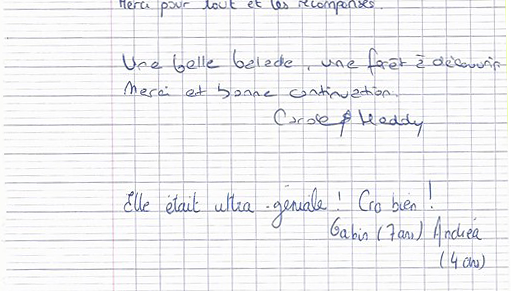 Merci pour tout et les récompenses.
Une belle balade, une forêt à découvrir
Merci et bonne continuation.
Carole & Heddy
Elle était ultra géniale ! Cro bien !
Gabin (7 ans) Andréa
(4 ans)